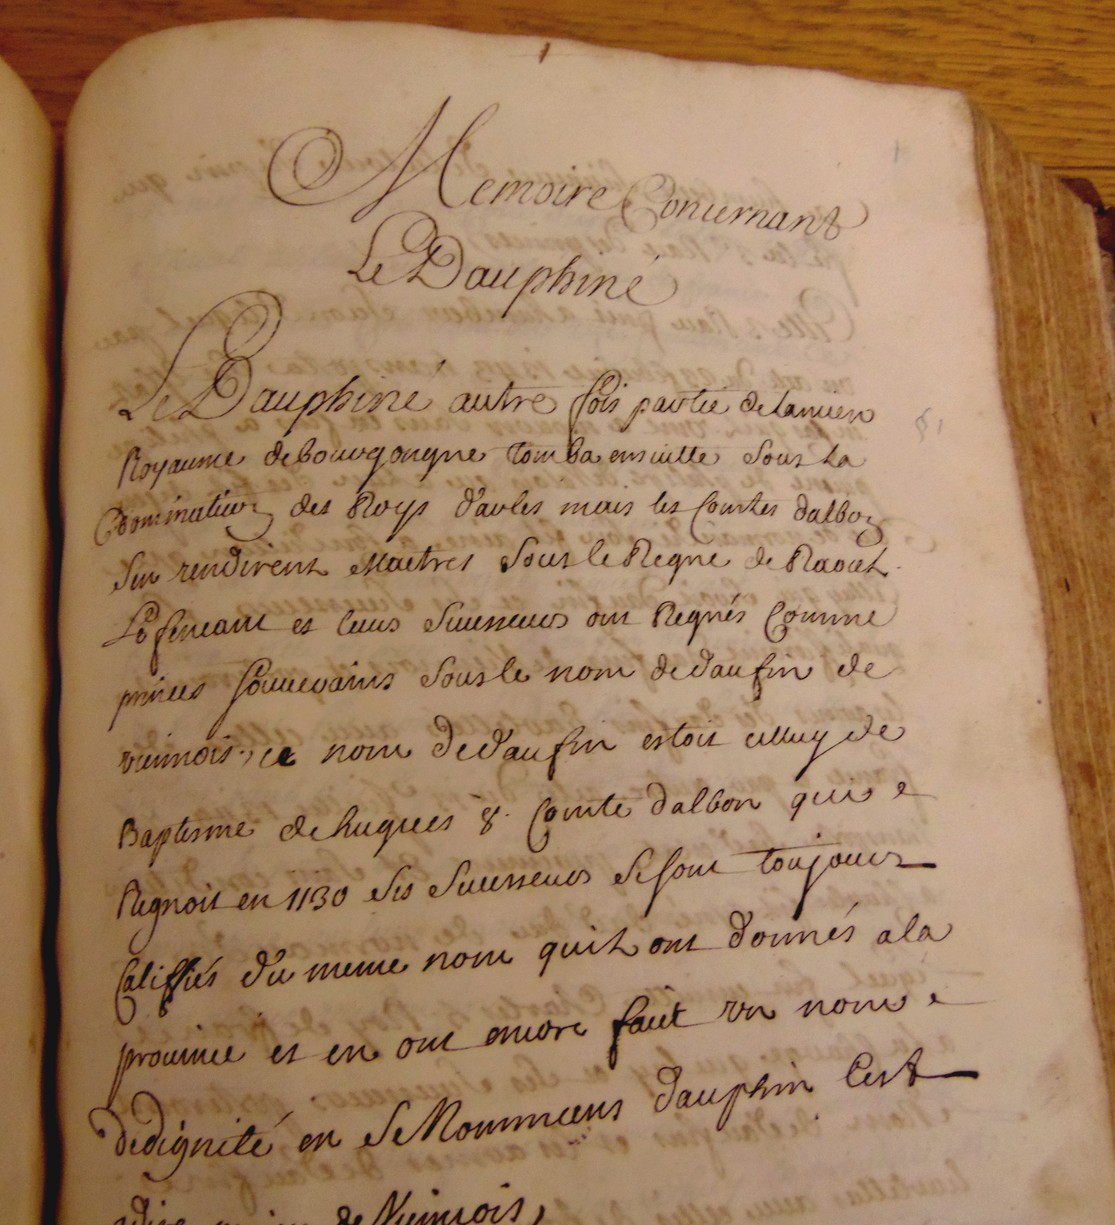 Memoire Concernant
Le Dauphiné
Le Dauphiné autre fois partie de lancien
Royaume de bourgongne tomba ensuitte sous la
Domination des Roys d'arles mais les Comtes dalbon
sen rendirent Maitres sous le Regne de Raoul
Lefeneant et leurs Successeurs ont Regnés Comme
princes souverains sous le nom de daufin de
viennois, ce nom de daufin estoit celluy de
Baptisme de hugues 8. Comte dalbon qui
Regnoit en 1130 ses Successeurs se sont toujours
Califfiés du meme nom quils ont donnés a la
province et en ont encore fait un nom
de dignité en se Nommens dauphin Cest
adire de Viennois,